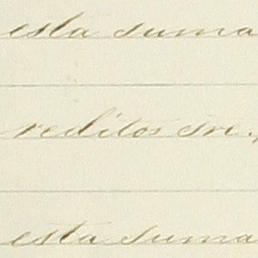 esta suma
reditos
esta suma